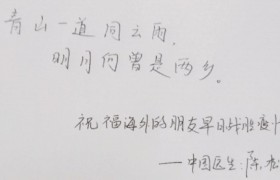 青山一道同云雨,
明月何曾是两乡。
祝福海外的朋友早日战胜疫
——中国医生:陈